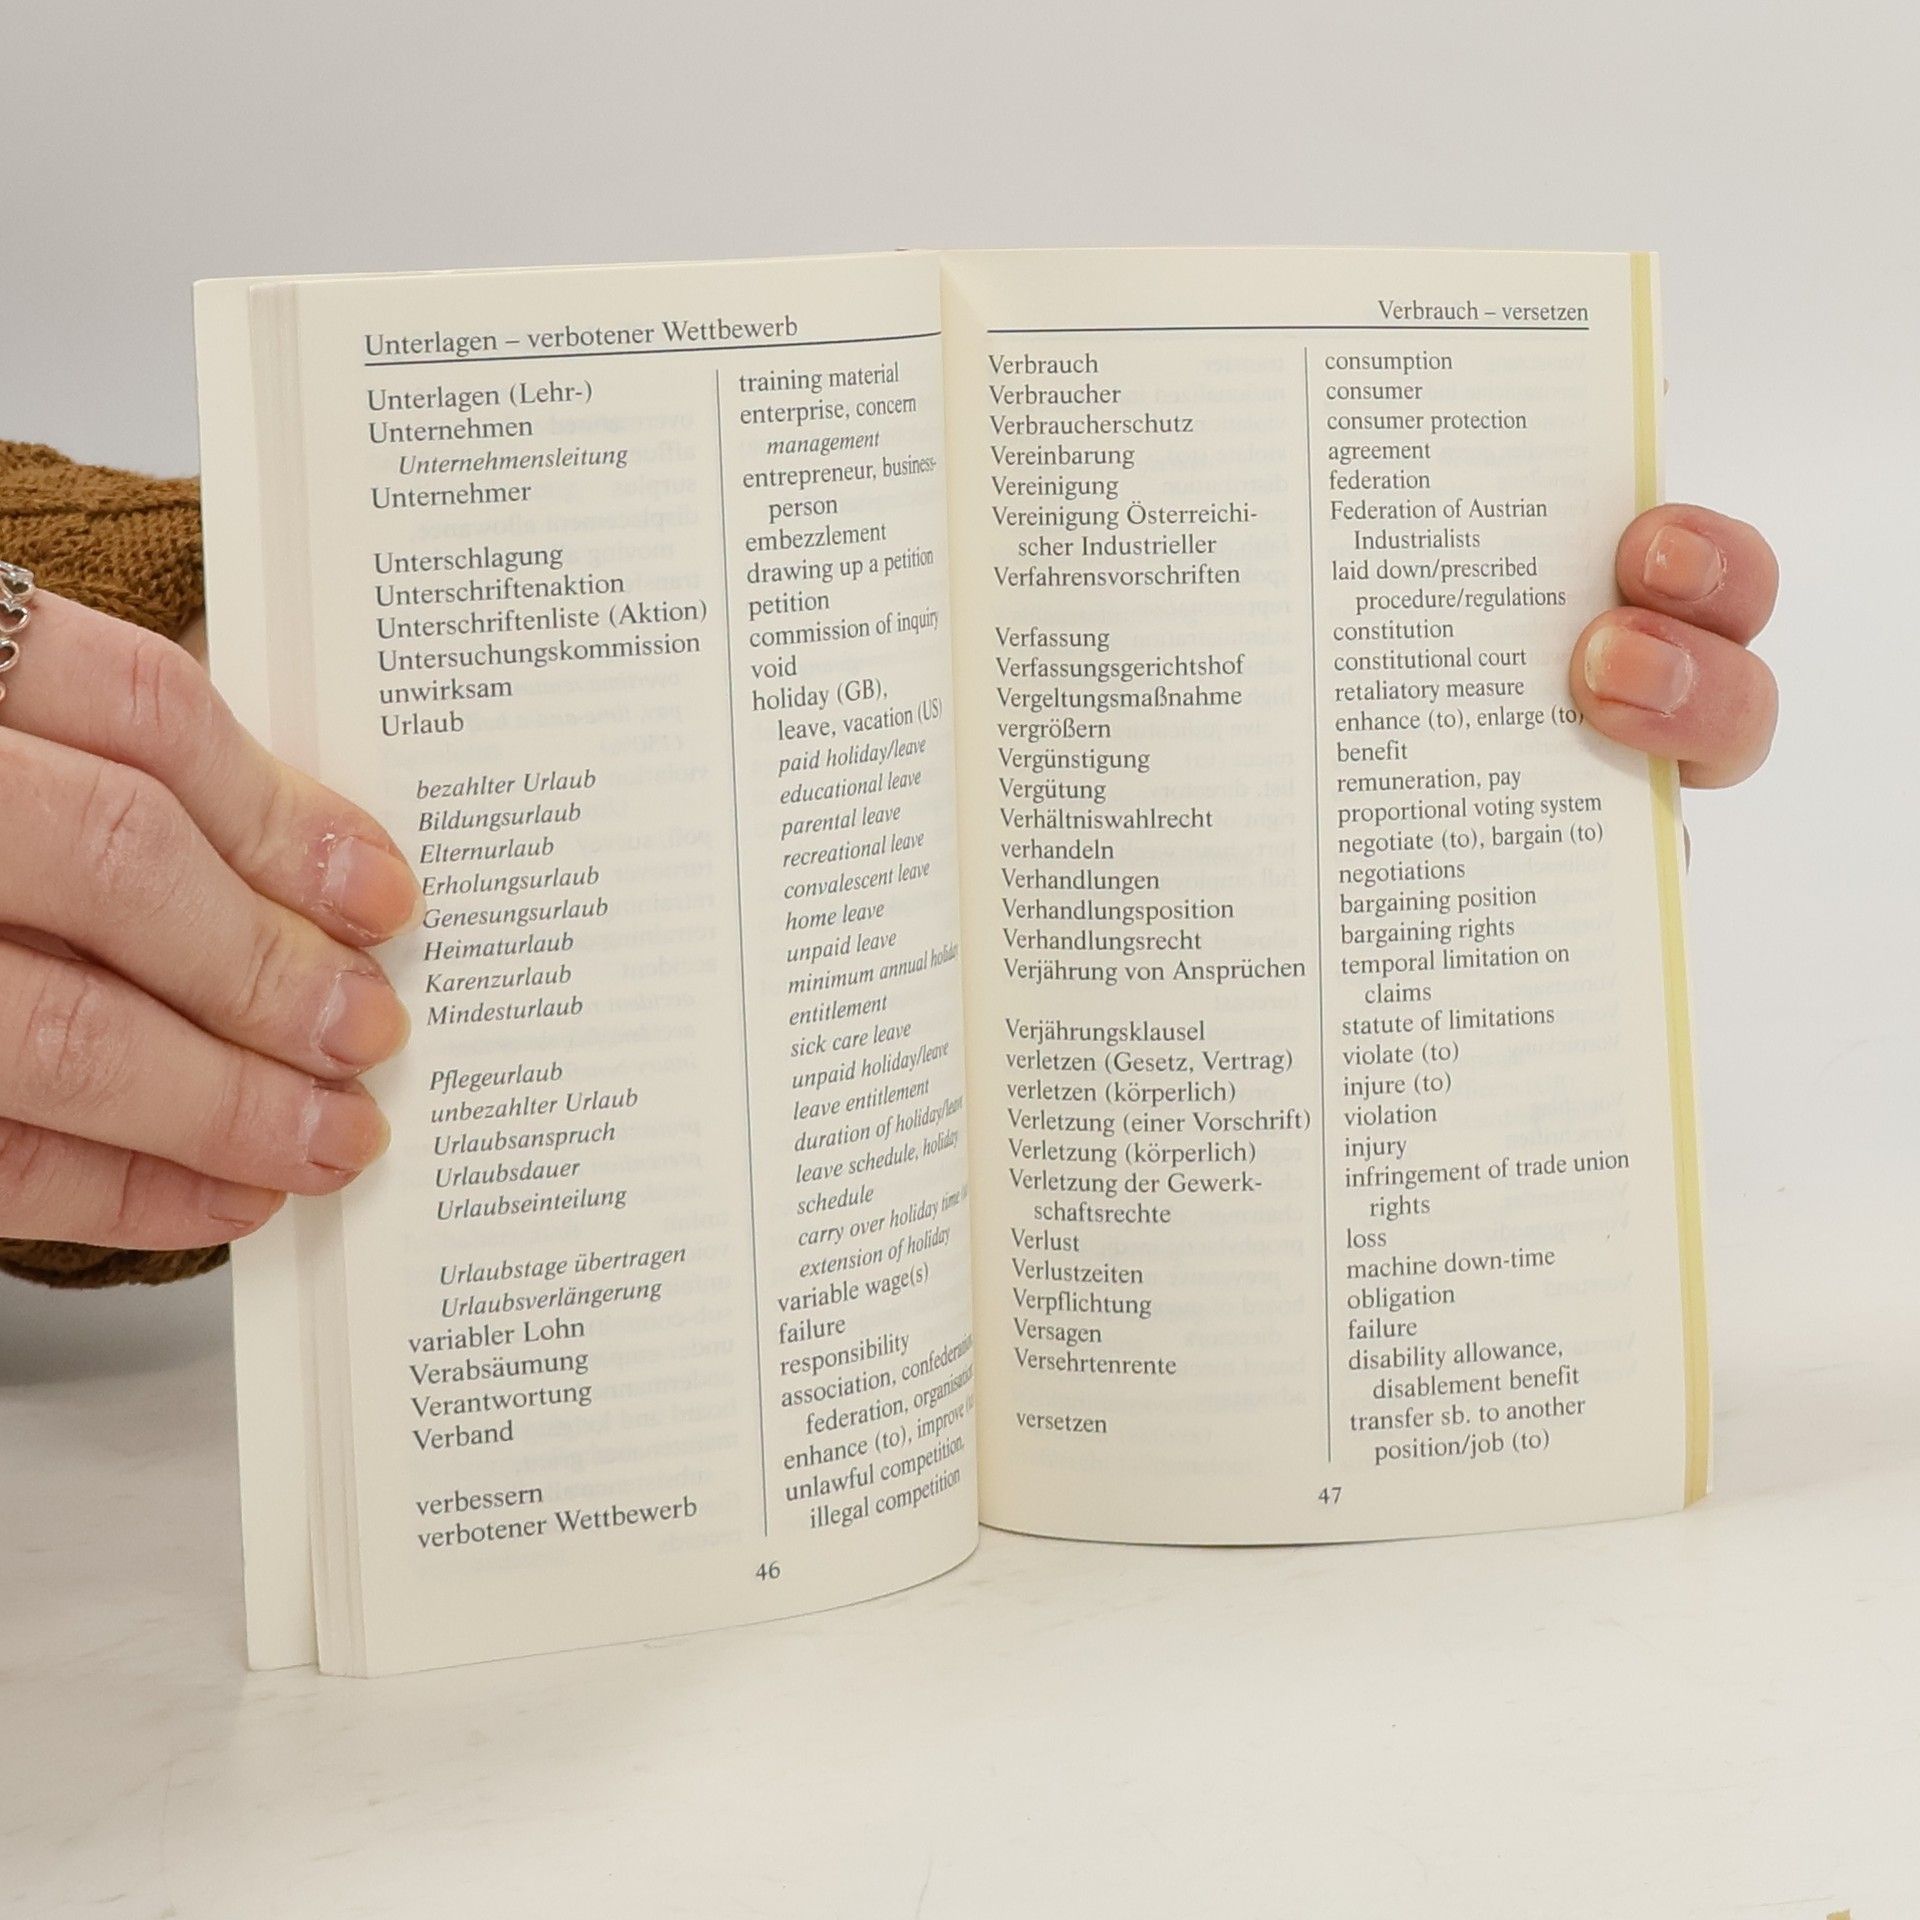 Unterlagen – verbotener Wettbewerb
Unterlagen (Lehr-)
Unternehmen
Unternehmensleitung
Unternehmer
Unterschlagung
Unterschriftenaktion
Unterschriftenliste (Aktion)
Untersuchungskommission
unwirksam
Urlaub
bezahlter Urlaub
Bildungsurlaub
Elternurlaub
Erholungsurlaub
Genesungsurlaub
Heimaturlaub
Karenzurlaub
Mindesturlaub
Pflegeurlaub
unbezahlter Urlaub
Urlaubsanspruch
Urlaubsdauer
Urlaubseinteilung
Urlaubstage übertragen
Urlaubsverlängerung
variabler Lohn
Verabsäumung
Verantwortung
Verband
verbessern
verbotener Wettbewerb
training material
enterprise, concern
management
entrepreneur, business-
person
embezzlement
drawing up a petition
petition
commission of inquiry
void
holiday (GB),
leave, vacation (US)
paid holiday/leave
educational leave
parental leave
recreational leave
convalescent leave
home leave
unpaid leave
minimum annual holiday
entitlement
sick care leave
unpaid holiday/leave
leave entitlement
duration of holiday/leave
leave schedule, holiday
schedule
carry over holiday time
extension of holiday
variable wage(s)
failure
responsibility
association, confederation,
federation, organisation
enhance (to), improve
unlawful competition,
illegal competition
46
Verbrauch – versetzen
Verbrauch
Verbraucher
Verbraucherschutz
Vereinbarung
Vereinigung
Vereinigung Österreichi-
scher Industrieller
Verfahrensvorschriften
Verfassung
Verfassungsgerichtshof
Vergeltungsmaßnahme
vergrößern
Vergünstigung
Vergütung
Verhältniswahlrecht
verhandeln
Verhandlungen
Verhandlungsposition
Verhandlungsrecht
Verjährung von Ansprüchen
Verjährungsklausel
verletzen (Gesetz, Vertrag)
verletzen (körperlich)
Verletzung (einer Vorschrift)
Verletzung (körperlich)
Verletzung der Gewerk-
schaftsrechte
Verlust
Verlustzeiten
Verpflichtung
Versagen
Versehrtenrente
versetzen
consumption
consumer
consumer protection
agreement
federation
Federation of Austrian
Industrialists
laid down/prescribed
procedure/regulations
constitution
constitutional court
retaliatory measure
enhance (to), enlarge (to)
benefit
remuneration, pay
proportional voting system
negotiate (to), bargain (to)
negotiations
bargaining position
bargaining rights
temporal limitation on
claims
statute of limitations
violate (to)
injure (to)
violation
injury
infringement of trade union
rights
loss
machine down-time
obligation
failure
disability allowance,
disablement benefit
transfer sb. to another
position/job (to)
47